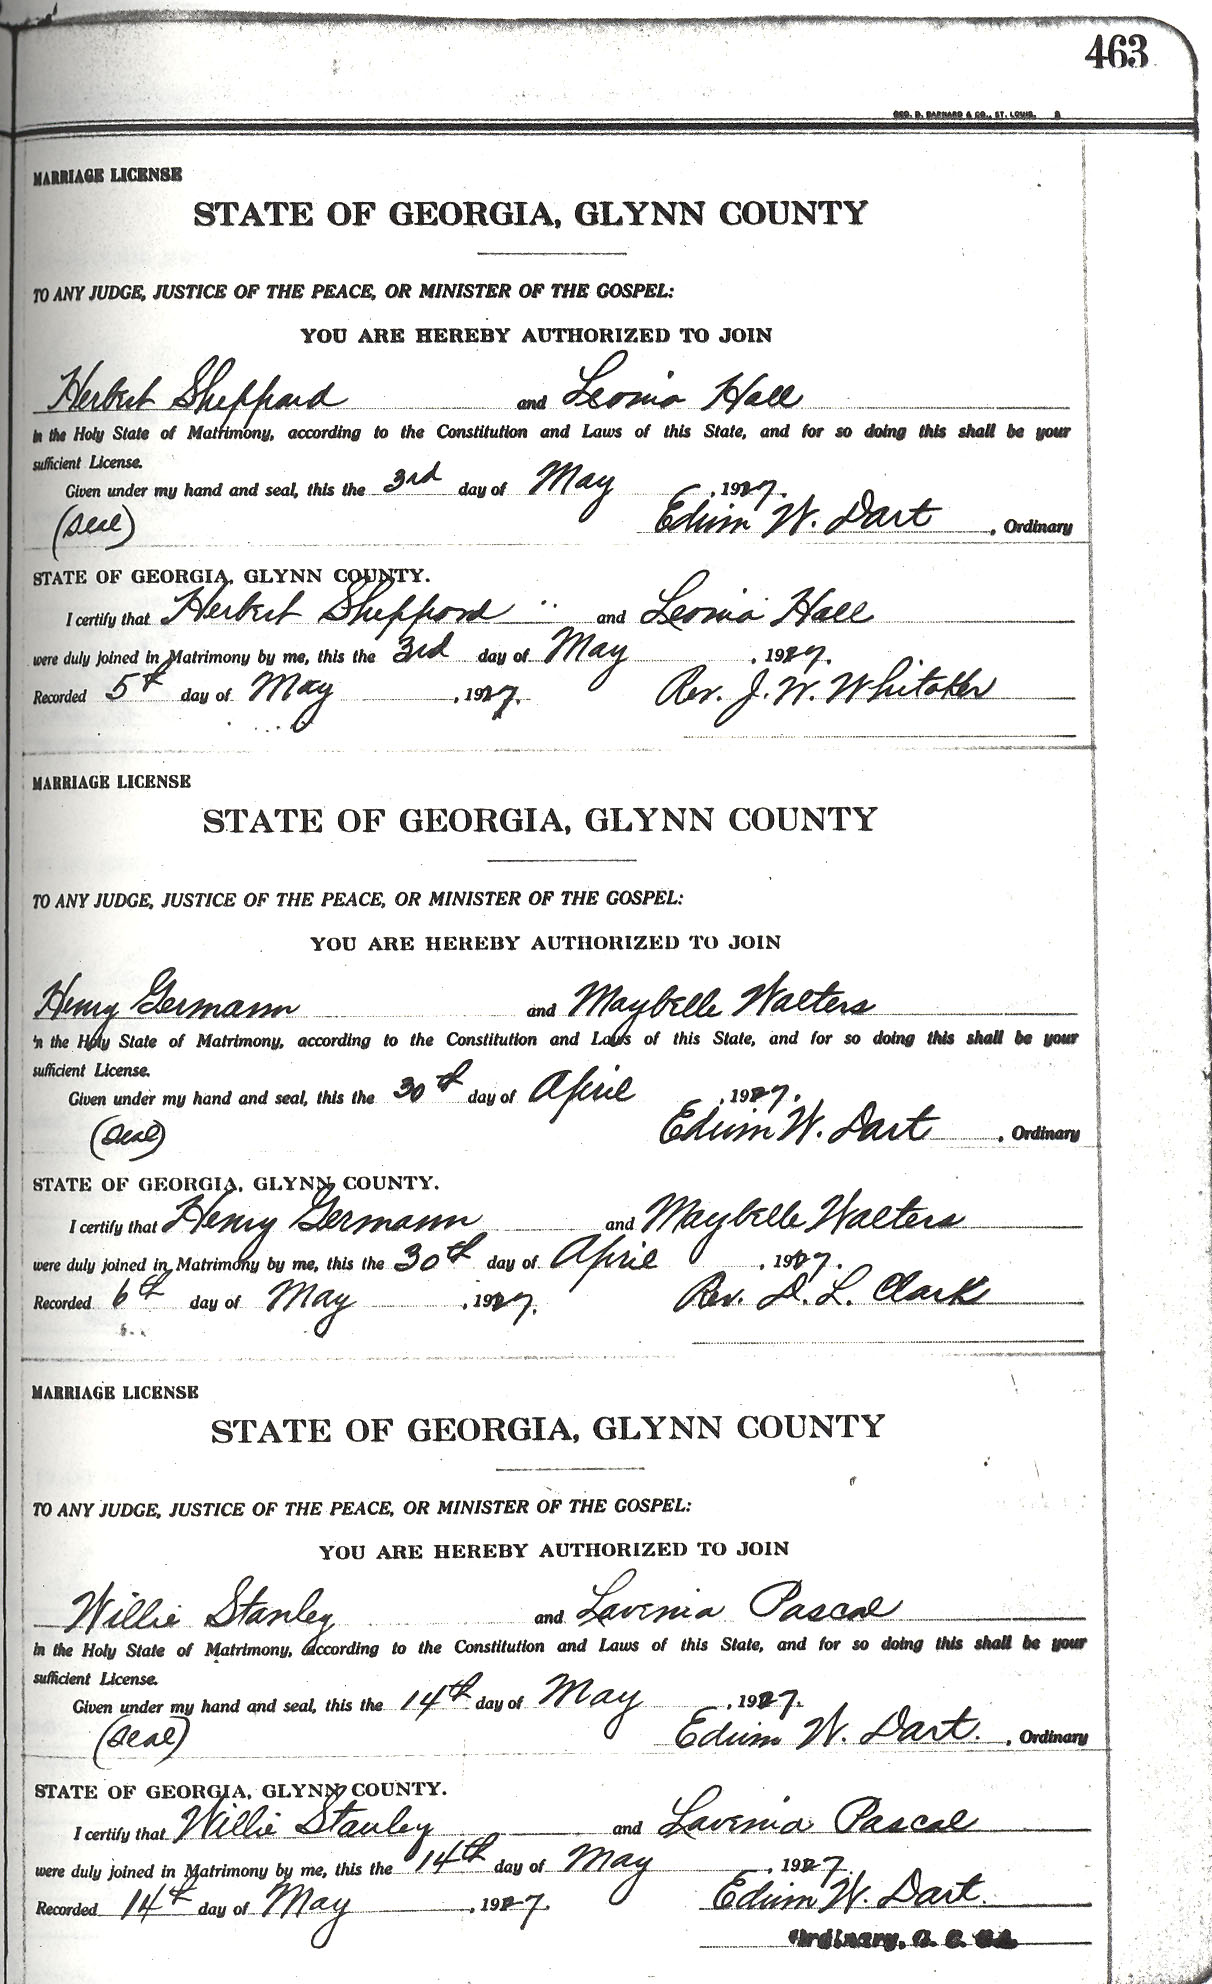 463
GEO. D. BARNARD & CO., ST. LOUIS.
MARRIAGE LICENSE
STATE OF GEORGIA, GLYNN COUNTY
TO ANY JUDGE, JUSTICE OF THE PEACE, OR MINISTER OF THE GOSPEL:
YOU ARE HEREBY AUTHORIZED TO JOIN
Herbert Sheppard and Leonia Hall
in the Holy State of Matrimony, according to the Constitution and Laws of this State, and for so doing this shall be your
sufficient License.
Given under my hand and seal, this the 3rd day of May, 1927.
(Seal) Edwin W. Dart, Ordinary
STATE OF GEORGIA, GLYNN COUNTY.
I certify that Herbert Sheppard and Leonia Hall
were duly joined in Matrimony by me, this the 3rd day of May, 1927.
Recorded 5th day of May, 1927. Rev. J. W. Whitaker
MARRIAGE LICENSE
STATE OF GEORGIA, GLYNN COUNTY
TO ANY JUDGE, JUSTICE OF THE PEACE, OR MINISTER OF THE GOSPEL:
YOU ARE HEREBY AUTHORIZED TO JOIN
Henry Germann and Maybelle Walters
in the Holy State of Matrimony, according to the Constitution and Laws of this State, and for so doing this shall be your
sufficient License.
Given under my hand and seal, this the 30th day of April, 1927.
(Seal) Edwin W. Dart, Ordinary
STATE OF GEORGIA, GLYNN COUNTY.
I certify that Henry Germann and Maybelle Walters
were duly joined in Matrimony by me, this the 30th day of April, 1927.
Recorded 6th day of May, 1927. Rev. D. L. Clark
MARRIAGE LICENSE
STATE OF GEORGIA, GLYNN COUNTY
TO ANY JUDGE, JUSTICE OF THE PEACE, OR MINISTER OF THE GOSPEL:
YOU ARE HEREBY AUTHORIZED TO JOIN
Willie Stanley and Lavenia Pascal
in the Holy State of Matrimony, according to the Constitution and Laws of this State, and for so doing this shall be your
sufficient License.
Given under my hand and seal, this the 14th day of May, 1927.
(Seal) Edwin W. Dart., Ordinary
STATE OF GEORGIA, GLYNN COUNTY.
I certify that Willie Stanley and Lavenia Pascal
were duly joined in Matrimony by me, this the 14th day of May, 1927.
Recorded 14th day of May, 1927. Edwin W. Dart.
Ordinary, G. C.